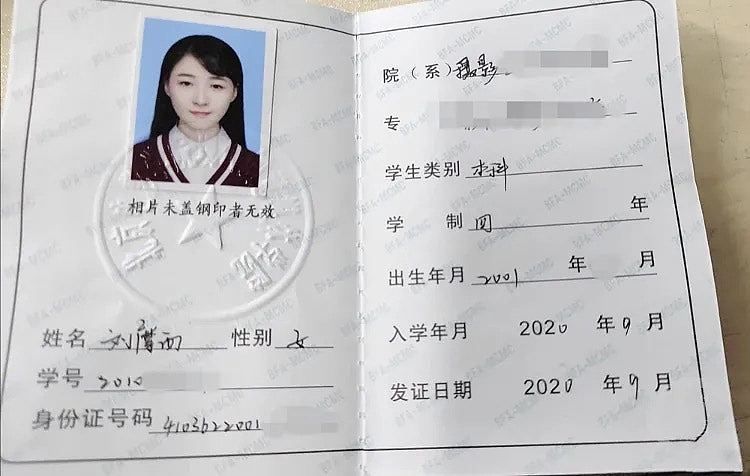 相片未盖钢印者无效
姓名 刘 性别 女
学号 2010
身份证号码 4103622001
院（系）摄影
专
学生类别 本科
学 制 四 年
出生年月 2001 年 月
入学年月 2020 年 9 月
发证日期 2020 年 9 月
北京
BFA-MCMC